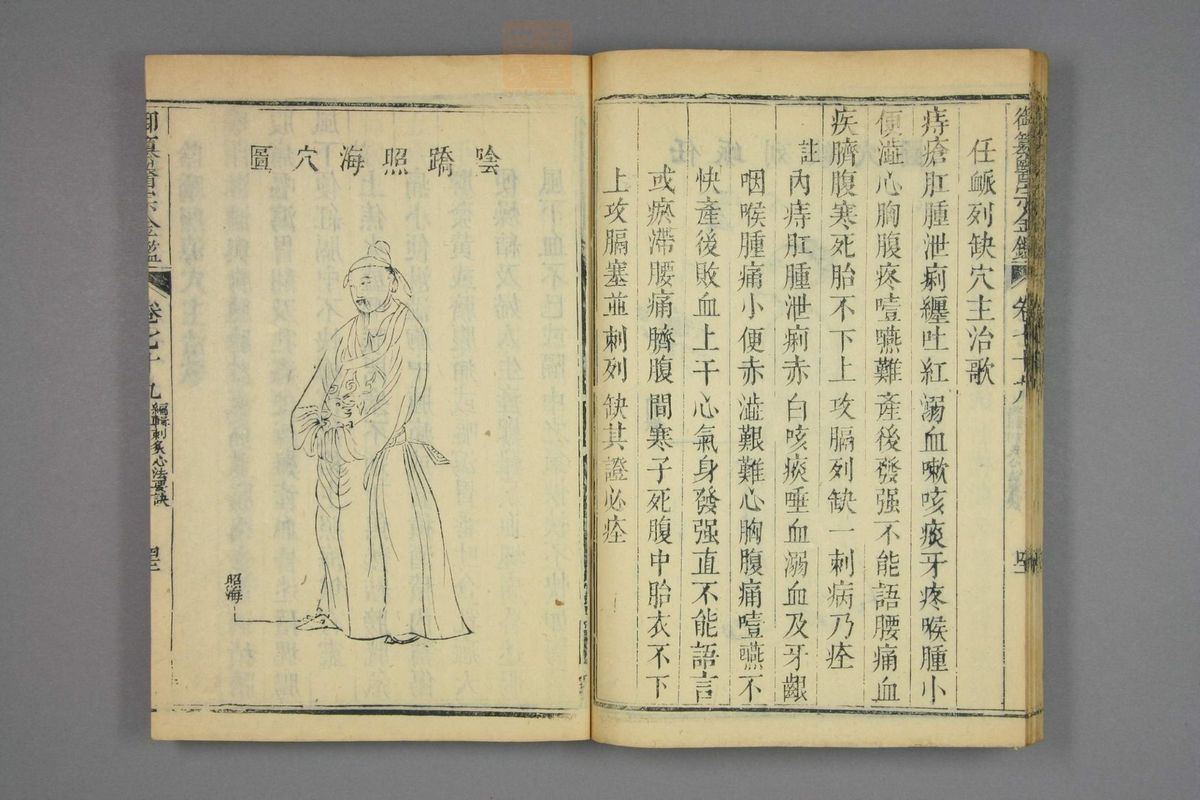 任䘑列缺穴主治歌
痔瘡肛腫泄痢纏吐紅溺血嗽咳痰牙疼喉腫小
便澁心胸腹疼噎嚥難產後發强不能語腰痛血
疾臍腹寒死胎不下上攻膈列缺一刺病乃痊
註內痔肛腫泄痢赤白咳痰唾血溺血及牙齦
咽喉腫痛小便赤澁艱難心胸腹痛噎嚥不
快產後敗血上干心氣身發强直不能語言
或瘀滯腰痛臍腹間寒子死腹中胎衣不下
上攻膈塞並刺列缺其證必痊
御纂醫宗金鑑
卷七十九
陰蹻照海穴圖
照海
御纂醫宗金鑑
卷七十九
編輯刺灸心法要訣